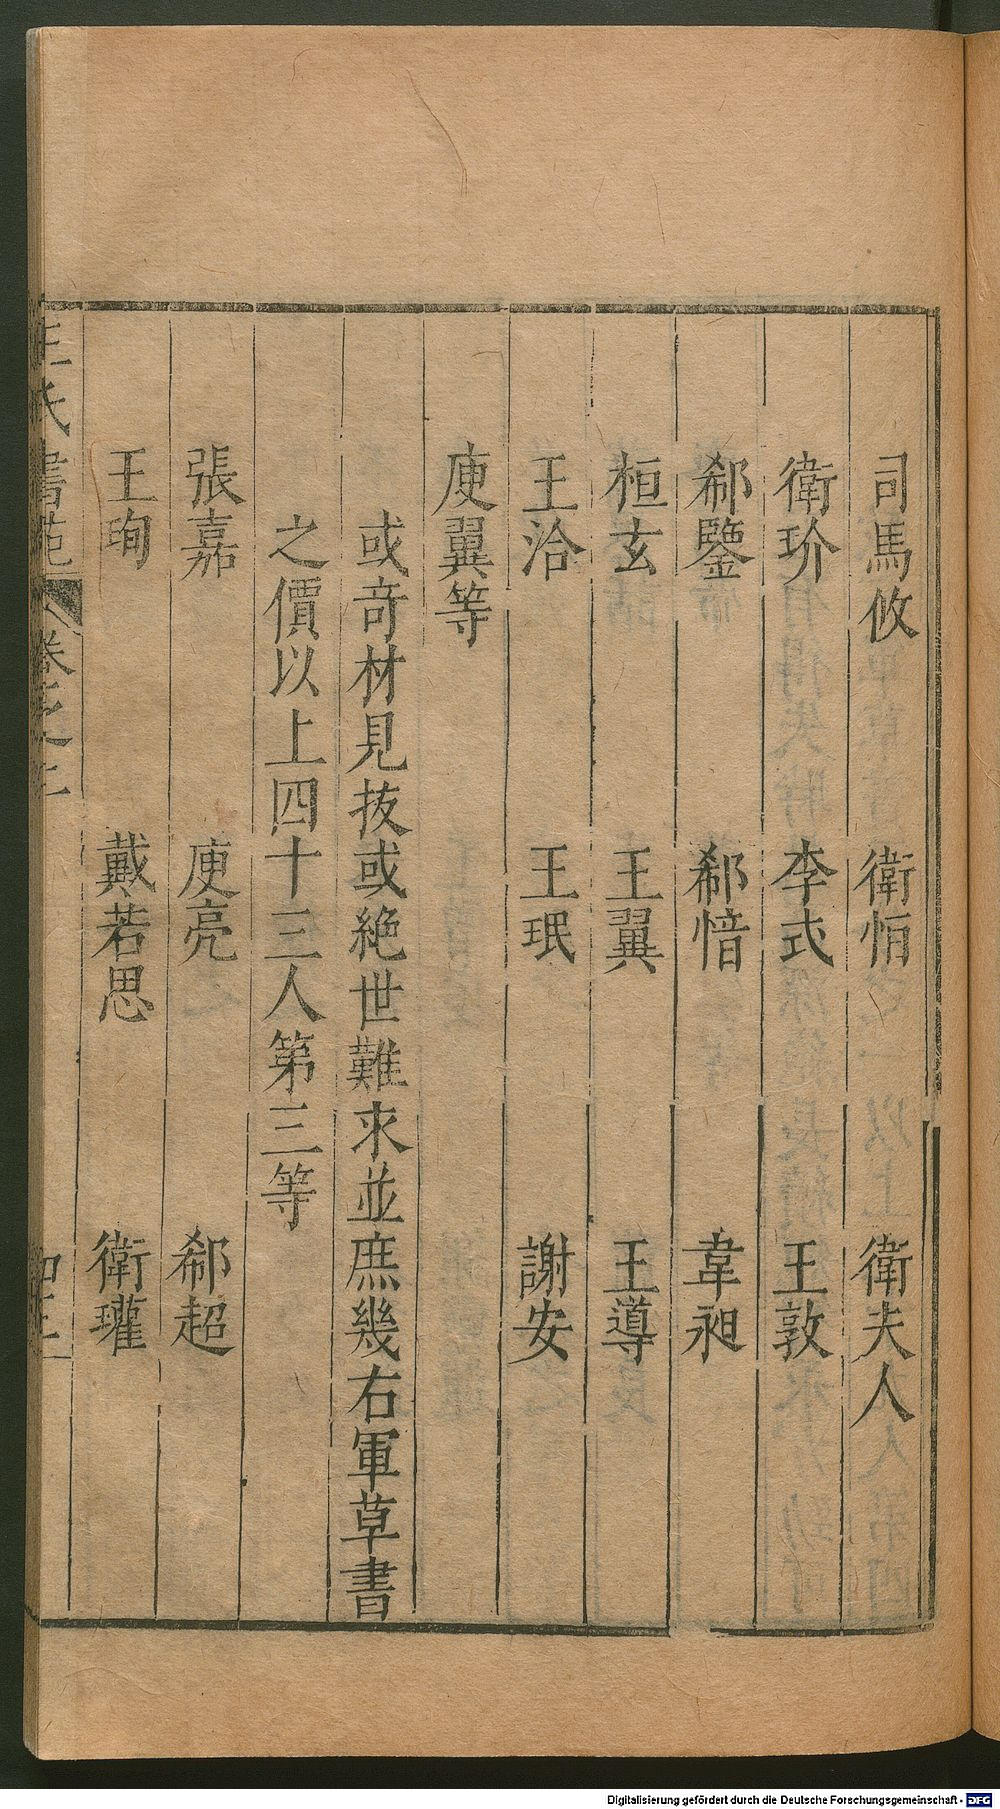 司馬攸　衛恒　衛夫人
衛玠　李式　王敦
郗鑒　郗愔　韋昶
桓玄　王翼　王導
王洽　王珉　謝安
庾翼等
或奇材見拔或絶世難求並庶幾右軍草書
之價以上四十三人第三等
張嘉　庾亮　郗超
王珣　戴若思　衛瓘
王氏書苑　卷之二
Digitalisierung gefördert durch die Deutsche Forschungsgemeinschaft - DFG